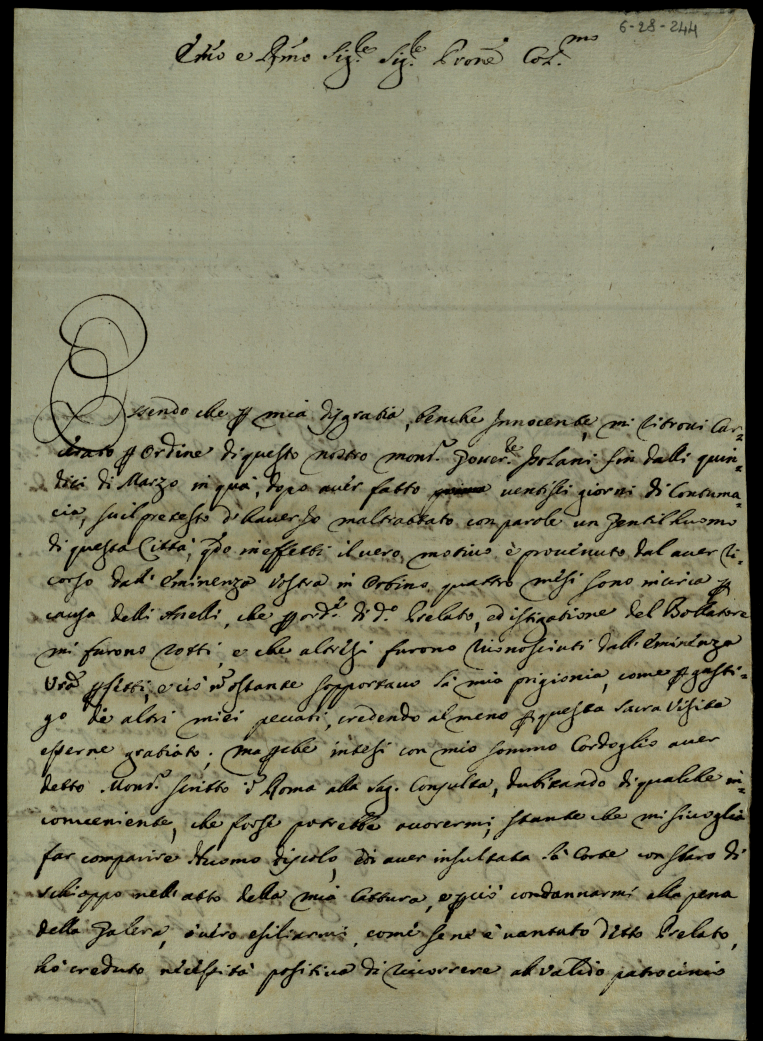 6-28-244
Em̃o e Rm̃o Sig.re Sig.re Pron̄e Col.mo
Essendo che ꝑ mia disgratia, benche Innocente, mi ritrovi Car=
cerato ꝑ Ordine di questo nostro mons.r Gover.re Isolani sin dalli quin=
dici di Marzo in quà, dopo aver fatto ventisei giorni di Contuma=
cia, sù il pretesto d'haver Io maltrattato con parole un Gentilhuomo
di questa Città, q̃do in effetti il vero motivo è provenuto dal aver ri=
corso dall' Eminenza Vostra in Orbino quattro mesi sono in circa ꝑ
causa delli Anelli, che ꝑ ord.e di d.o Prelato, ed istigatione del Bollatore
mi furono rotti, e che altresì furono riconosciuti dall' Eminenza
Vr̃a ꝑfetti, e ciò n̄ostante sopportavo la mia prigionia, come ꝑ gasti=
go de altri miei peccati, credendo almeno ꝑ questa Sacra Visita
esserne gratiato; ma ꝑche intesi con mio sommo Cordoglio aver
detto Mons.r scritto in Roma alla Sag. Consulta, dubitando di qualche in=
conveniente, che forse potrebbe occorermi, stante che mi si voglia
far comparire Huomo discolo, ed aver insultata la Corte con sparo di
schioppo nell' atto della mia Cattura, e ꝑciò condannarmi alla pena
della Galera, ò vero esiliarmi, come se ne è vantato detto Prelato,
hò creduto necessità positiva di ricorrere al valido patrocinio